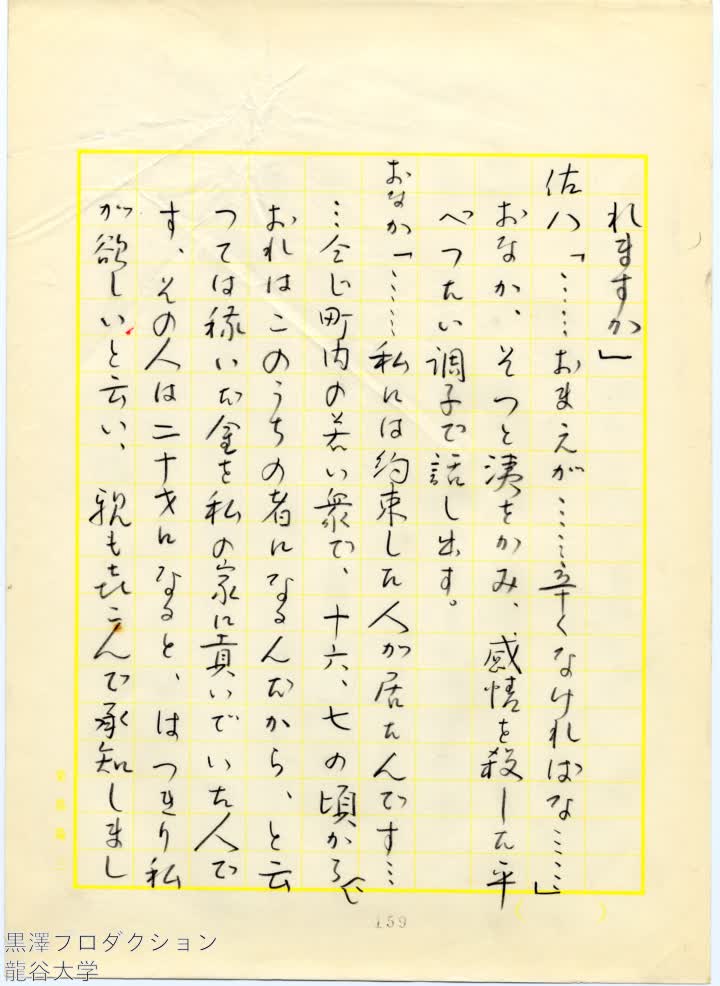 れますか」
佐八「……おまえが……辛くなければな……」
おなか、そつと洟をかみ、感情を殺した平
べつたい調子で話し出す。
おなか「……私には約束した人が居たんです…
…仝じ町内の若い衆で、十六、七の頃から、
おれはこのうちの者になるんだから、と云
つては稼いだ金を私の家に貢いでいた人で
す、その人は二十才になると、はつきり私
が欲しいと云い、親も喜こんで承知しまし
159
黒澤プロダクション
龍谷大学